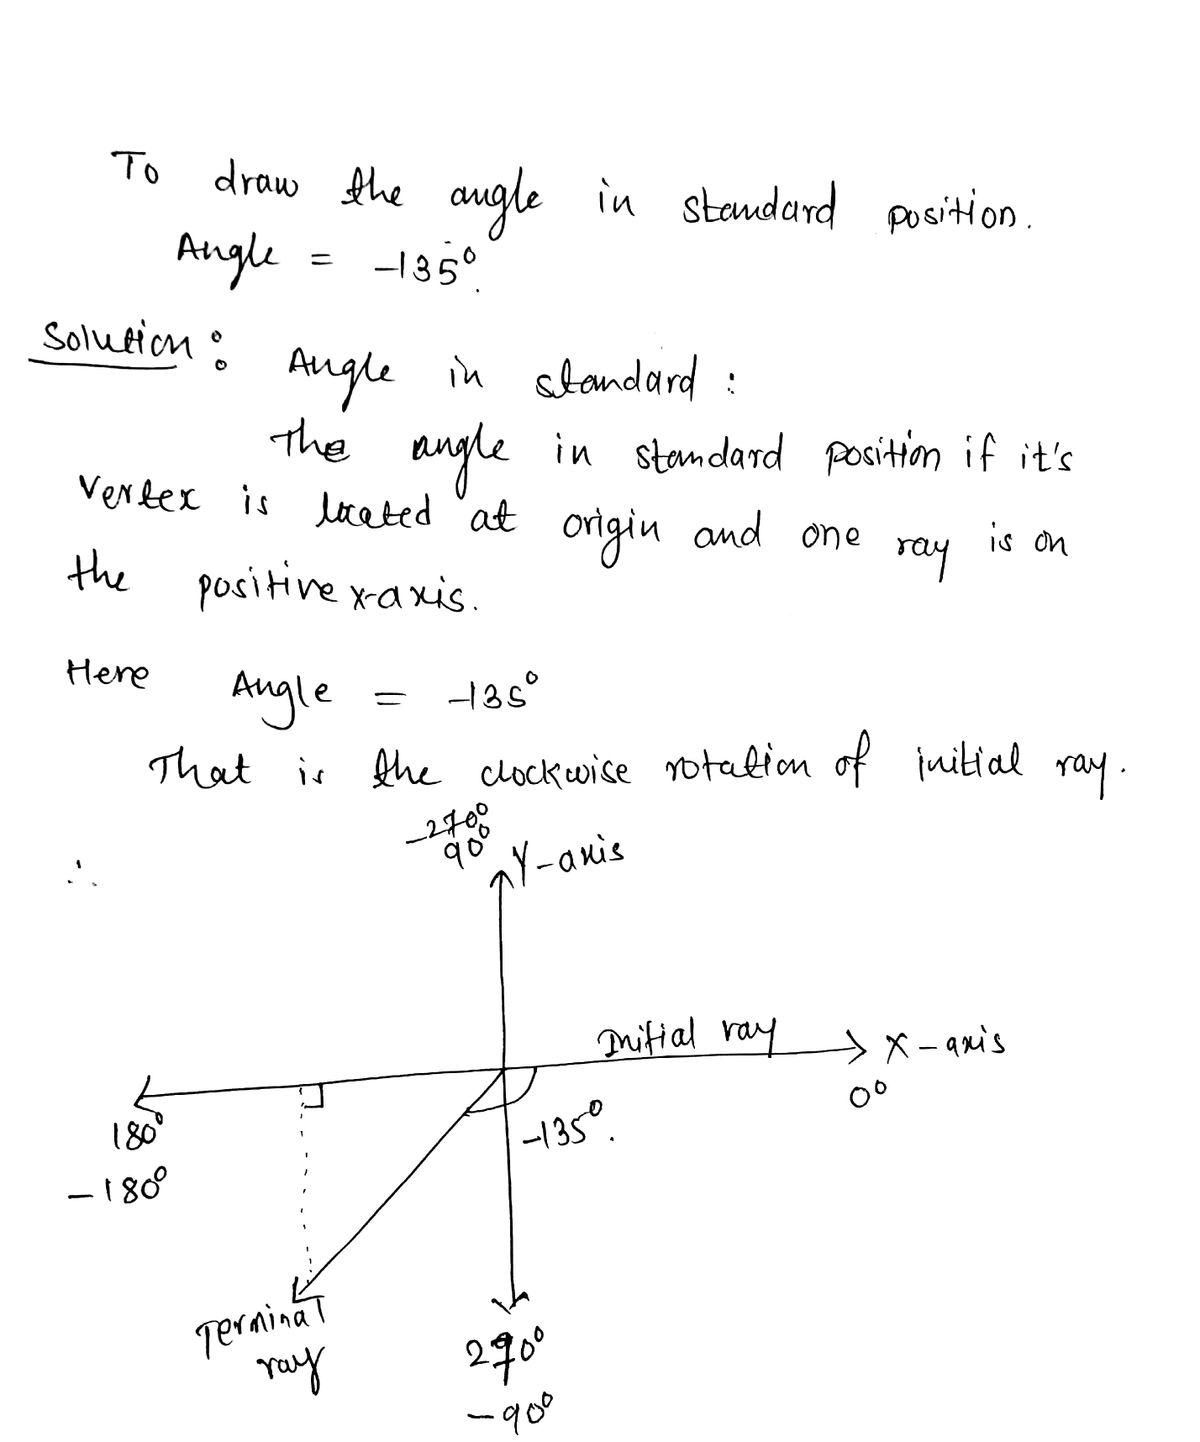 To draw the angle in standard position.
Angle = -135°.
Solution: Angle in standard:
The angle in standard position if it's
vertex is located at origin and one ray is on
the positive x-axis.
Here Angle = -135°
That is the clockwise rotation of initial ray.
-270°
90°
Y-axis
∴
Initial ray
X-axis
0°
180°
-180°
-135°.
Terminal
ray
270°
-90°